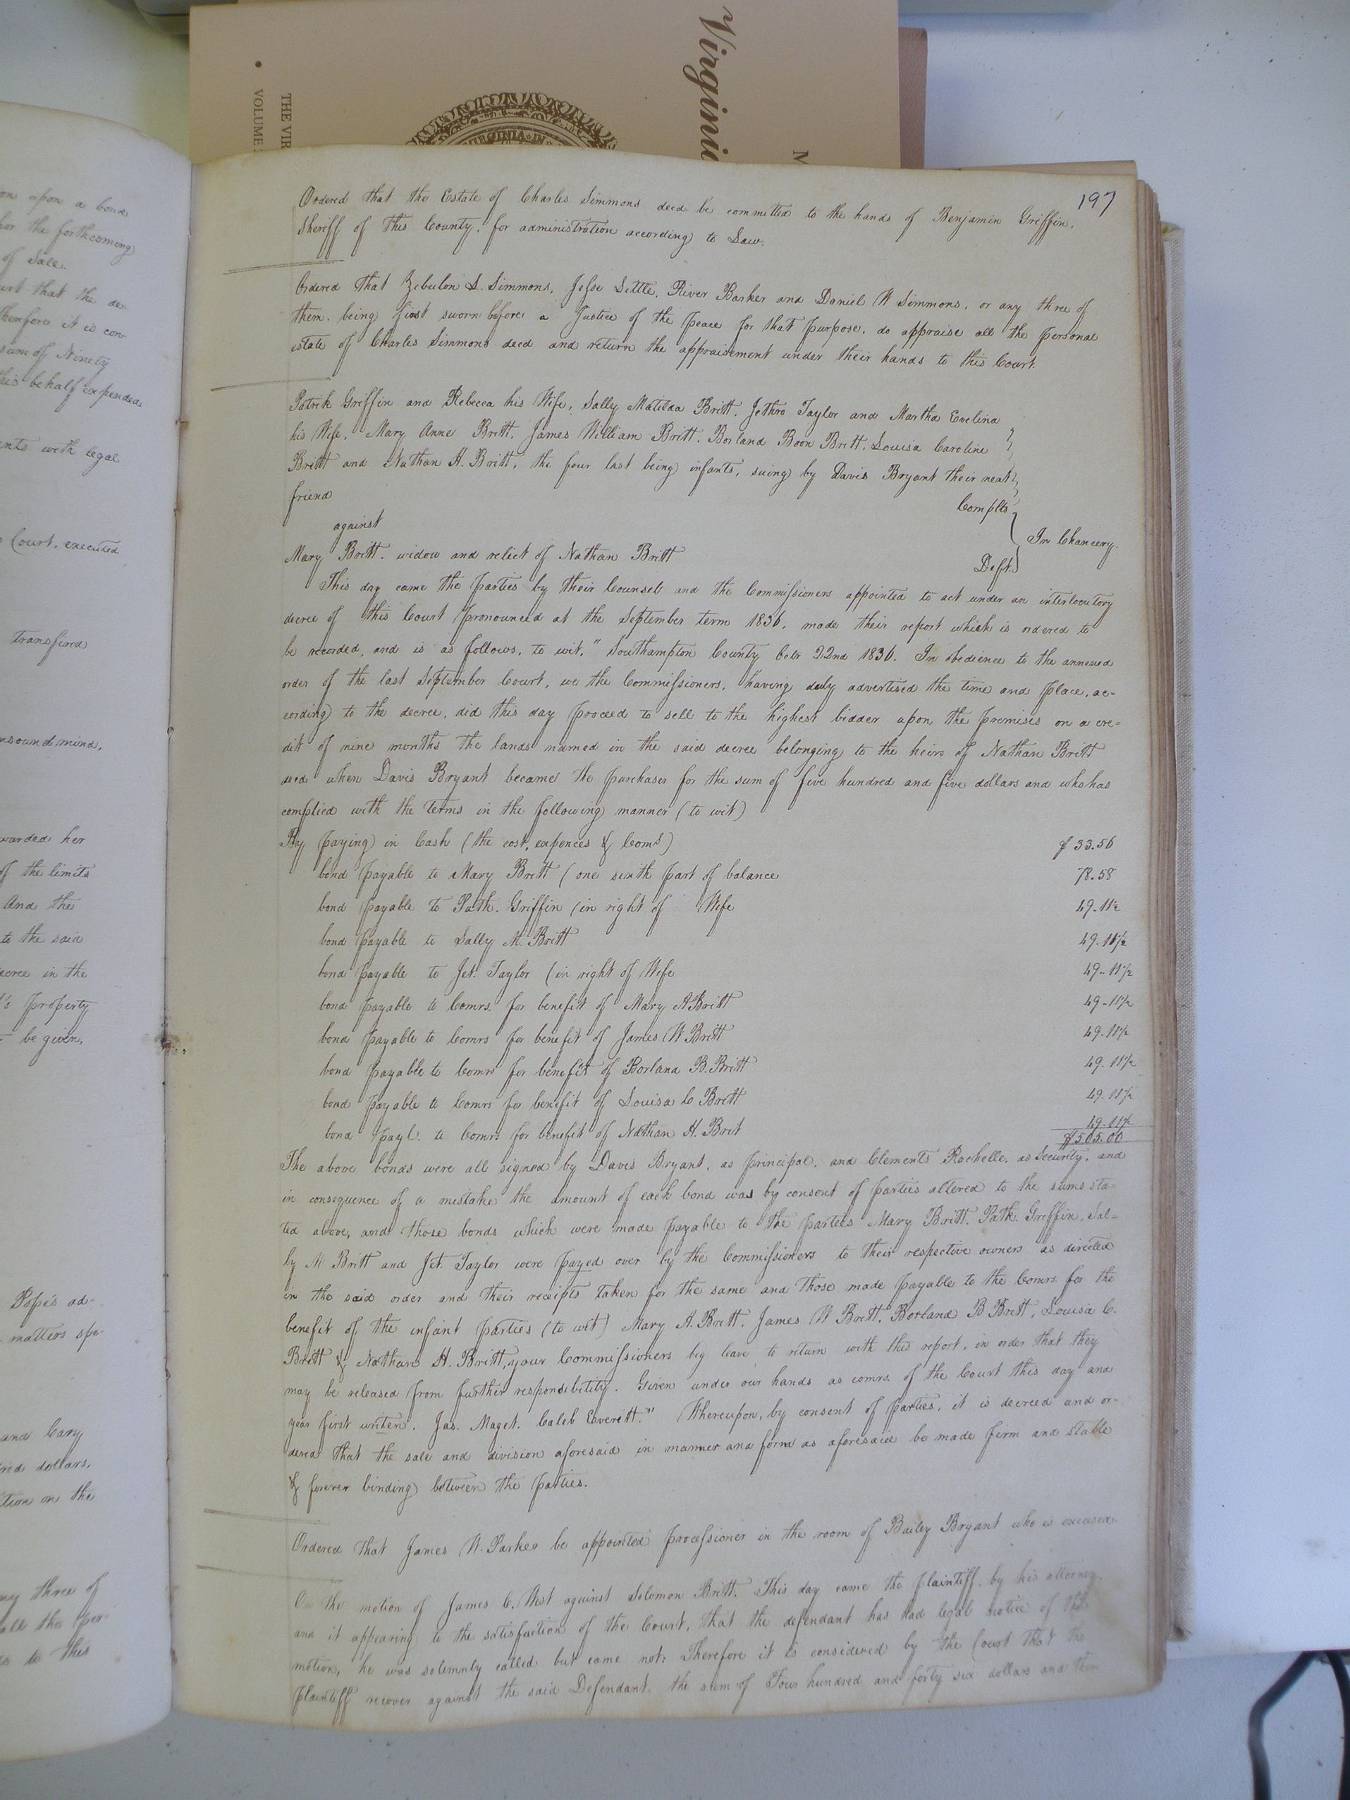 Virginia
THE VIR
VOLUME
VIRGINIA IN
M
on upon a bond
for the forthcoming
of Sale.
urt that the de
Therefore it is con
sum of Ninety
this behalf expended
ents with legal
Court, executed
transfered
nsound mind,
warded her
of the limits
And the
to the said
decree in the
's property
be given,
Pope's ad-
matters spe-
and Cary
red dollars,
ition on the
ny three of
all the per-
to this
197
Ordered that the Estate of Charles Simmons decd be committed to the hands of Benjamin Griffin,
Sheriff of this County, for administration according to Law.
Ordered that Zebulon S. Simmons, Jesse Little, River Barker and Daniel W Simmons, or any three of
them, being first sworn before a Justice of the peace for that purpose, do appraise all the personal
estate of Charles Simmons decd and return the appraisement under their hands to this Court.
Patrick Griffin and Rebecca his Wife, Sally Matilda Britt, Jethro Taylor and Martha Evelina
his Wife, Mary Anne Britt, James William Britt, Borland Boon Britt, Louisa Caroline
Britt and Nathan H. Britt, the four last being infants, suing by Davis Bryant their next
friend Complts
against In Chancery.
Mary Britt, widow and relict of Nathan Britt Deft.
This day came the parties by their Counsels and the Commissioners appointed to act under an interlocutory
decree of this Court pronounced at the September term 1836, made their report which is ordered to
be recorded, and is as follows, to wit, "Southampton County Octr 22nd 1836. In obedience to the annexed
order of the last September Court, we the Commissioners, having duly advertised the time and place, ac-
cording to the decree, did this day proceed to sell to the highest bidder upon the premises on a cre-
dit of nine months the lands named in the said decree belonging to the heirs of Nathan Britt
decd when Davis Bryant became the purchaser for the sum of five hundred and five dollars and who has
complied with the terms in the following manner (to wit)
By paying in Cash (the cost, expences & Coms) $33.56
bond payable to Mary Britt (one sixth part of balance 78.58
bond payable to Patk. Griffin (in right of Wife 49-11½
bond payable to Sally M. Britt 49-11½
bond payable to Jet. Taylor (in right of Wife 49-11½
bond payable to Comrs for benefit of Mary A Britt 49-11½
bond payable to Comrs for benefit of James W Britt 49.11½
bond payable to Comrs for benefit of Borland B. Britt 49.11½
bond payable to Comrs for benefit of Louisa C Britt 49.11½
bond payl. to Comrs for benefit of Nathan H. Brit 49.11½
$505.00
The above bonds were all signed by Davis Bryant, as principal, and Clements Rochelle, as Security, and
in consequence of a mistake the amount of each bond was by consent of parties altered to the sums sta-
ted above, and those bonds which were made payable to the parties Mary Britt, Patk. Griffin, Sal-
ly M Britt and Jet. Taylor were payed over by the Commissioners to their respective owners as directed
in the said order and their receipts taken for the same and those made payable to the Comrs for the
benefit of the infant parties (to wit) Mary A. Britt, James W Britt, Borland B Britt, Louisa C.
Britt & Nathan H. Britt, your Commissioners beg leave to return with this report, in order that they
may be released from further responsibility. Given under our hands as comrs. of the Court this day and
year first writen. Jas. Maget. Caleb Everett." Whereupon, by consent of parties, it is decreed and or-
dered that the sale and division aforesaid in manner and form as aforesaid be made firm and stable
& forever binding between the parties.
Ordered that James W. Parker be appointed processioner in the room of Bailey Bryant who is excused.
On the motion of James C. West against Solomon Britt. This day came the plaintiff by his attorney,
and it appearing to the satisfaction of the Court, that the defendant has had legal notice of this
motion, he was solemnly called but came not: Therefore it is considered by the Court that the
plaintiff recover against the said Defendant, the sum of Four hundred and forty six dollars and then